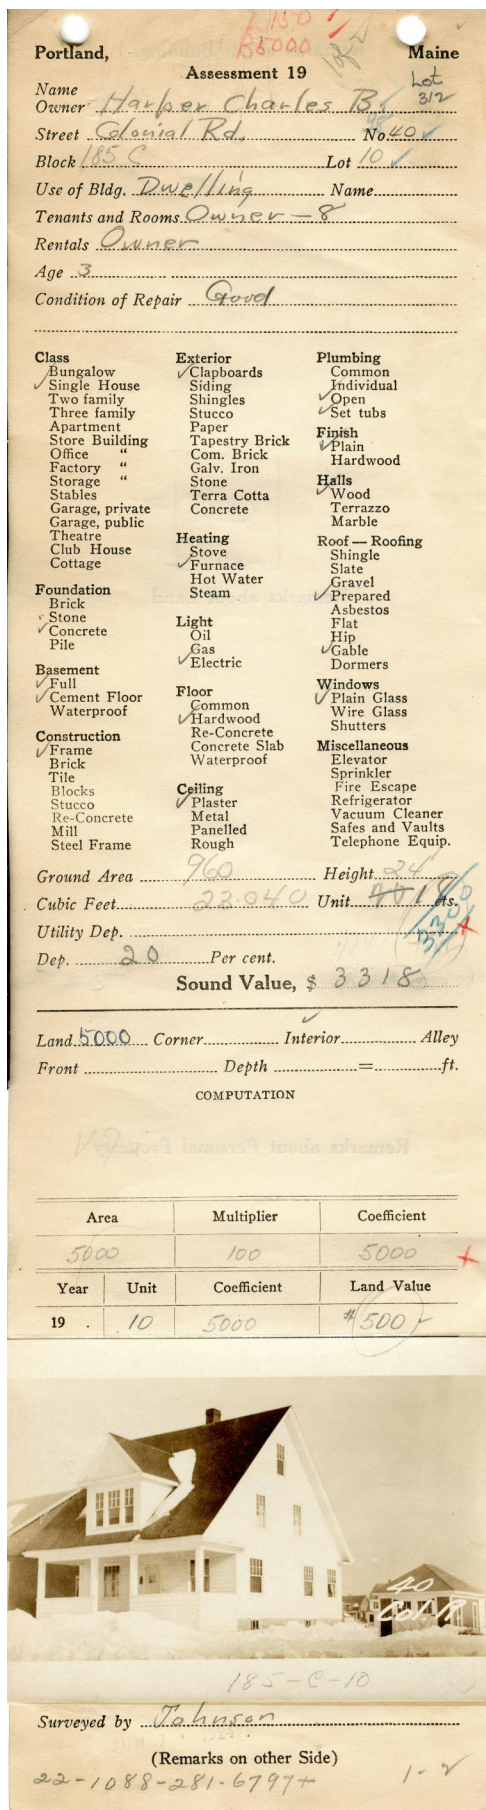 L 150
B 5000
Portland, Maine
Assessment 19
Lot
312
Name
Owner Harper Charles B.
Street Colonial Rd. No 40
Block 185 C Lot 10
Use of Bldg. Dwelling Name
Tenants and Rooms Owner - 8
Rentals Owner
Age 3
Condition of Repair Good
Class
Bungalow
Single House
Two family
Three family
Apartment
Store Building
Office "
Factory "
Storage "
Stables
Garage, private
Garage, public
Theatre
Club House
Cottage
Foundation
Brick
Stone
Concrete
Pile
Basement
Full
Cement Floor
Waterproof
Construction
Frame
Brick
Tile
Blocks
Stucco
Re-Concrete
Mill
Steel Frame
Exterior
Clapboards
Siding
Shingles
Stucco
Paper
Tapestry Brick
Com. Brick
Galv. Iron
Stone
Terra Cotta
Concrete
Heating
Stove
Furnace
Hot Water
Steam
Light
Oil
Gas
Electric
Floor
Common
Hardwood
Re-Concrete
Concrete Slab
Waterproof
Ceiling
Plaster
Metal
Panelled
Rough
Plumbing
Common
Individual
Open
Set tubs
Finish
Plain
Hardwood
Halls
Wood
Terrazzo
Marble
Roof — Roofing
Shingle
Slate
Gravel
Prepared
Asbestos
Flat
Hip
Gable
Dormers
Windows
Plain Glass
Wire Glass
Shutters
Miscellaneous
Elevator
Sprinkler
Fire Escape
Refrigerator
Vacuum Cleaner
Safes and Vaults
Telephone Equip.
Ground Area 960 Height 24
Cubic Feet 23.040 Unit 18 cts.
3300
Utility Dep.
Dep. 20 Per cent.
Sound Value, $ 3318
Land 5000 Corner Interior Alley
Front Depth = ft.
COMPUTATION
Area Multiplier Coefficient
5000 100 5000
Year Unit Coefficient Land Value
19 . 10 5000 #500
40
Col. R
185-C-10
Surveyed by Johnson
(Remarks on other Side)
22-1088-281-6797+ 1-2